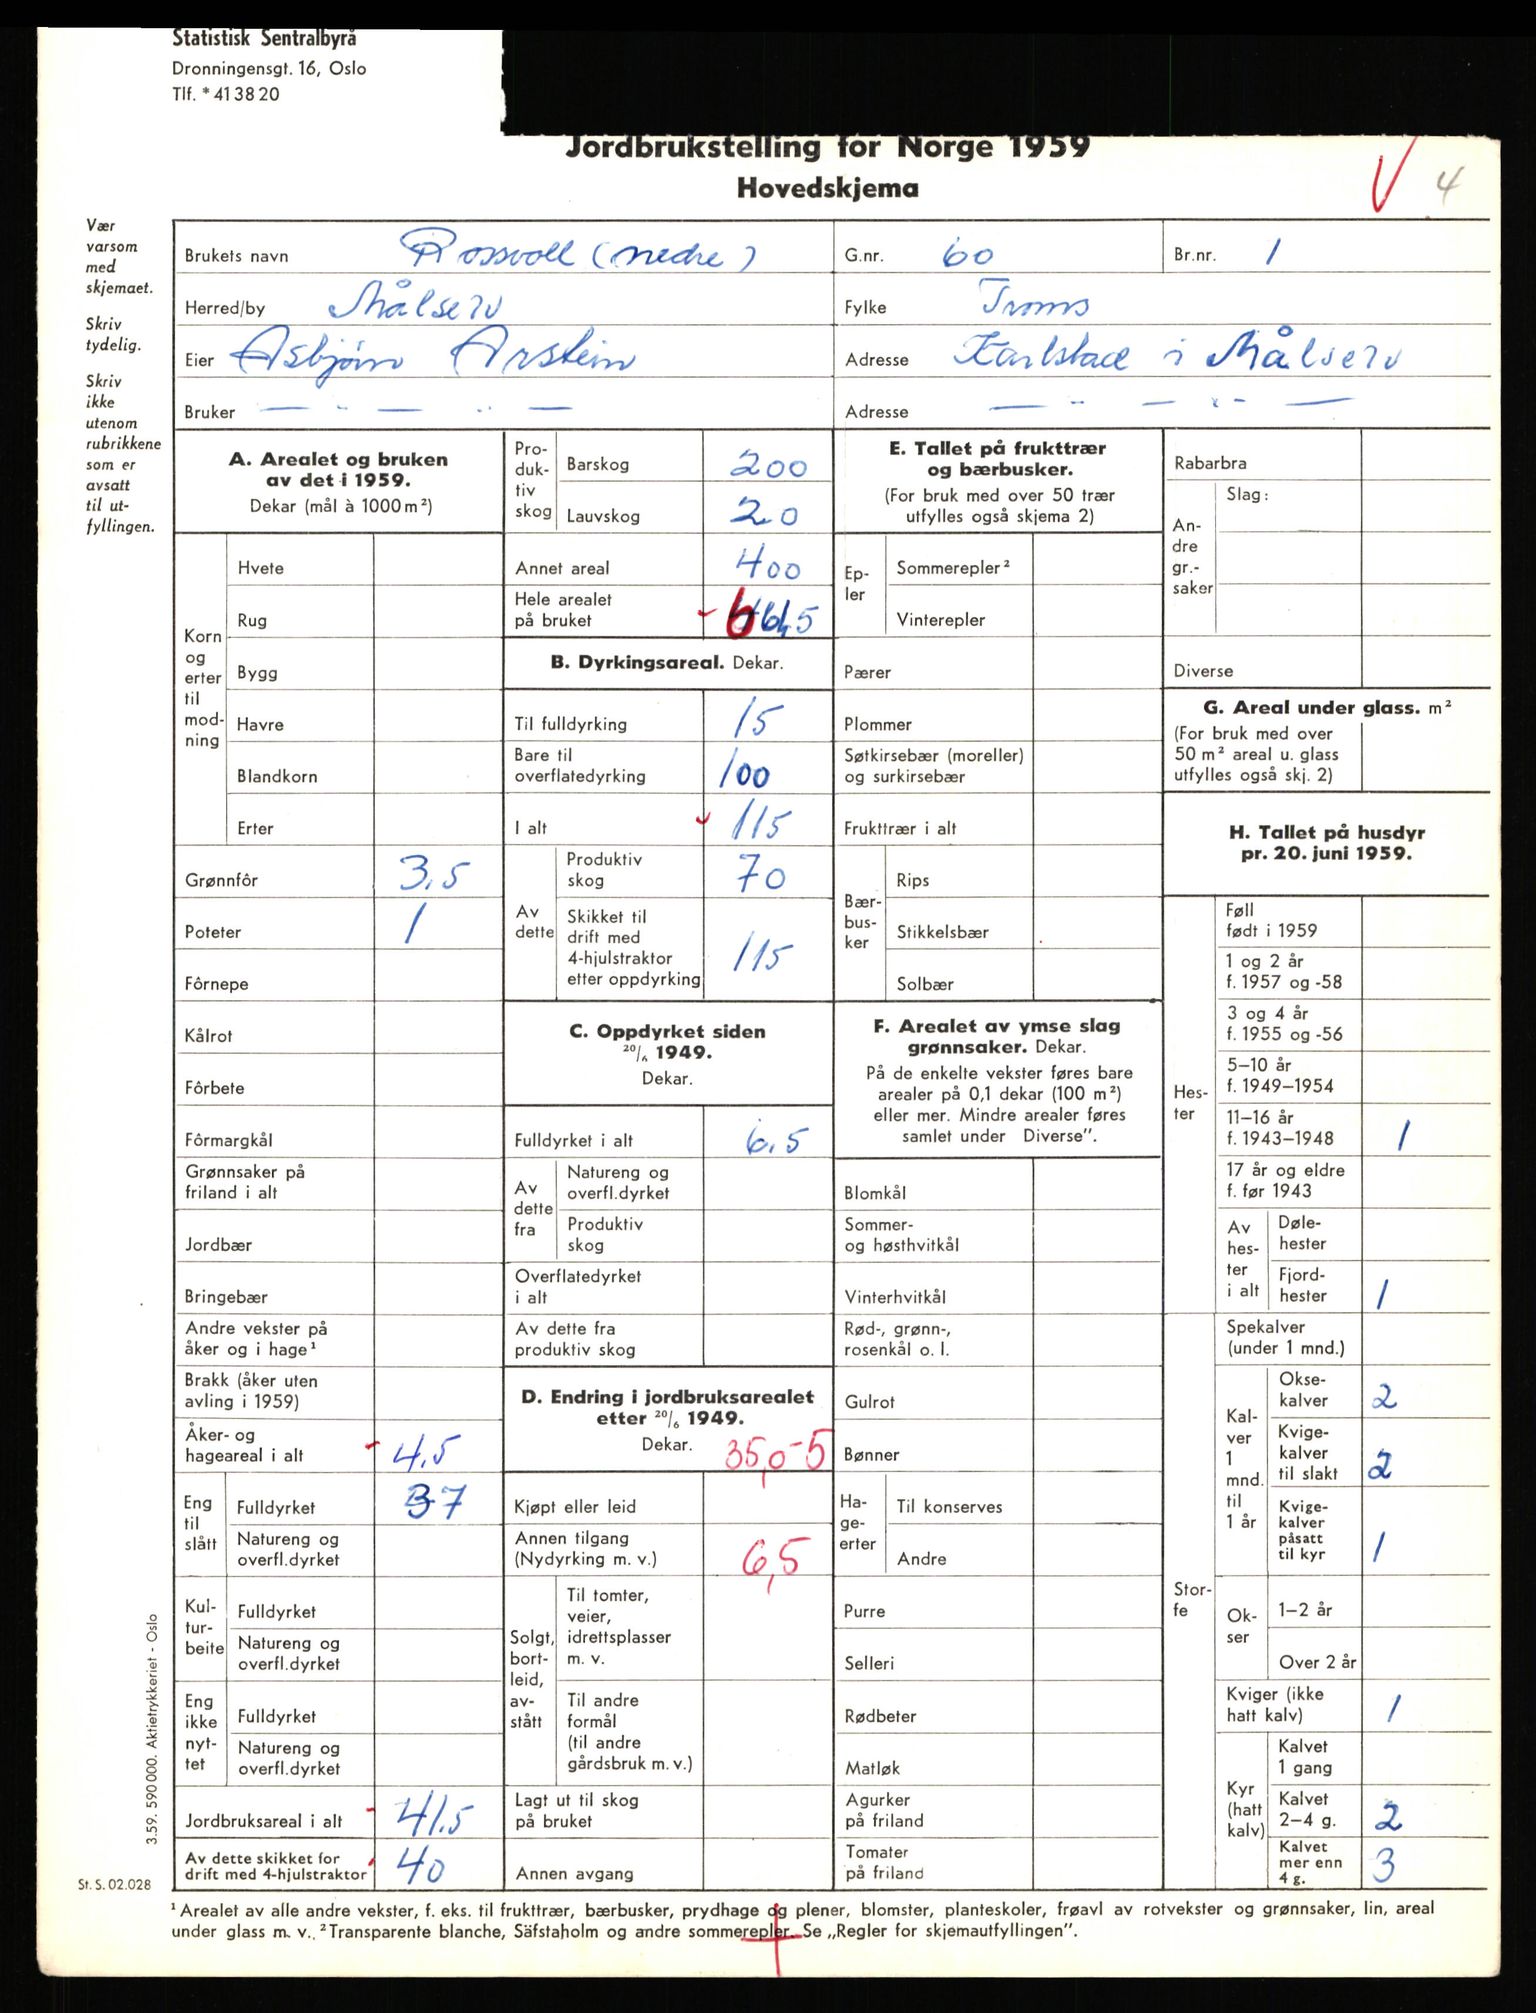 Statistisk Sentralbyrå
Dronningensgt. 16, Oslo
Tlf. * 41 38 20
Jordbrukstelling for Norge 1959
Hovedskjema
4
Vær
varsom
med
skjemaet.
Skriv
tydelig.
Skriv
ikke
utenom
rubrikkene
som er
avsatt
til ut-
fyllingen.
Brukets navn Rossvoll (nedre) G.nr. 60 Br.nr. 1
Herred/by Målselv Fylke Troms
Eier Asbjørn Arstein Adresse Karlstad i Målselv
Bruker — " — " — Adresse — " — " —
A. Arealet og bruken
av det i 1959.
Dekar (mål à 1000 m²)
Korn
og
erter
til
mod-
ning
Hvete
Rug
Bygg
Havre
Blandkorn
Erter
Grønnfôr 3,5
Poteter 1
Fôrnepe
Kålrot
Fôrbete
Fôrmargkål
Grønnsaker på
friland i alt
Jordbær
Bringebær
Andre vekster på
åker og i hage¹
Brakk (åker uten
avling i 1959)
Åker- og
hageareal i alt 4,5
Eng
til
slått
Fulldyrket 37
Natureng og
overfl.dyrket
Kul-
tur-
beite
Fulldyrket
Natureng og
overfl.dyrket
Eng
ikke
nyt-
tet
Fulldyrket
Natureng og
overfl.dyrket
Jordbruksareal i alt 41,5
Av dette skikket for
drift med 4-hjulstraktor 40
Pro-
duk-
tiv
skog
Barskog 200
Lauvskog 20
Annet areal 400
Hele arealet
på bruket
B. Dyrkingsareal. Dekar.
Til fulldyrking 15
Bare til
overflatedyrking 100
I alt 115
Av
dette
Produktiv
skog 70
Skikket til
drift med
4-hjulstraktor
etter oppdyrking 115
C. Oppdyrket siden
20/6 1949.
Dekar.
Fulldyrket i alt 6,5
Av
dette
fra
Natureng og
overfl.dyrket
Produktiv
skog
Overflatedyrket
i alt
Av dette fra
produktiv skog
D. Endring i jordbruksarealet
etter 20/6 1949.
Dekar. 35,0-5
Kjøpt eller leid
Annen tilgang
(Nydyrking m. v.) 6,5
Solgt,
bort-
leid,
av-
stått
Til tomter,
veier,
idrettsplasser
m. v.
Til andre
formål
(til andre
gårdsbruk m. v.)
Lagt ut til skog
på bruket
Annen avgang
E. Tallet på frukttrær
og bærbusker.
(For bruk med over 50 trær
utfylles også skjema 2)
Ep-
ler
Sommerepler²
Vinterepler
Pærer
Plommer
Søtkirsebær (moreller)
og surkirsebær
Frukttrær i alt
Bær-
bus-
ker
Rips
Stikkelsbær
Solbær
F. Arealet av ymse slag
grønnsaker. Dekar.
På de enkelte vekster føres bare
arealer på 0,1 dekar (100 m²)
eller mer. Mindre arealer føres
samlet under Diverse".
Blomkål
Sommer-
og høsthvitkål
Vinterhvitkål
Rød-, grønn-,
rosenkål o. l.
Gulrot
Bønner
Ha-
ge-
erter
Til konserves
Andre
Purre
Selleri
Rødbeter
Matløk
Agurker
på friland
Tomater
på friland
Rabarbra
An-
dre
gr.-
saker
Slag:
Diverse
G. Areal under glass. m²
(For bruk med over
50 m² areal u. glass
utfylles også skj. 2)
H. Tallet på husdyr
pr. 20. juni 1959.
Hes-
ter
Føll
født i 1959
1 og 2 år
f. 1957 og -58
3 og 4 år
f. 1955 og -56
5–10 år
f. 1949–1954
11–16 år
f. 1943–1948 1
17 år og eldre
f. før 1943
Av
hes-
ter
i alt
Døle-
hester
Fjord-
hester 1
Stor-
fe
Spekalver
(under 1 mnd.)
Kal-
ver
1
mnd.
til
1 år
Okse-
kalver 2
Kvige-
kalver
til slakt 2
Kvige-
kalver
påsatt
til kyr 1
Ok-
ser
1–2 år
Over 2 år
Kviger (ikke
hatt kalv) 1
Kyr
(hatt
kalv)
Kalvet
1 gang
Kalvet
2–4 g. 2
Kalvet
mer enn
4 g. 3
3.59. 590 000. Aktietrykkeriet - Oslo
St. S. 02.028
¹ Arealet av alle andre vekster, f. eks. til frukttrær, bærbusker, prydhage og plener, blomster, planteskoler, frøavl av rotvekster og grønnsaker, lin, areal
under glass m. v. ² Transparente blanche, Säfstaholm og andre sommerepler. Se „Regler for skjemautfyllingen".